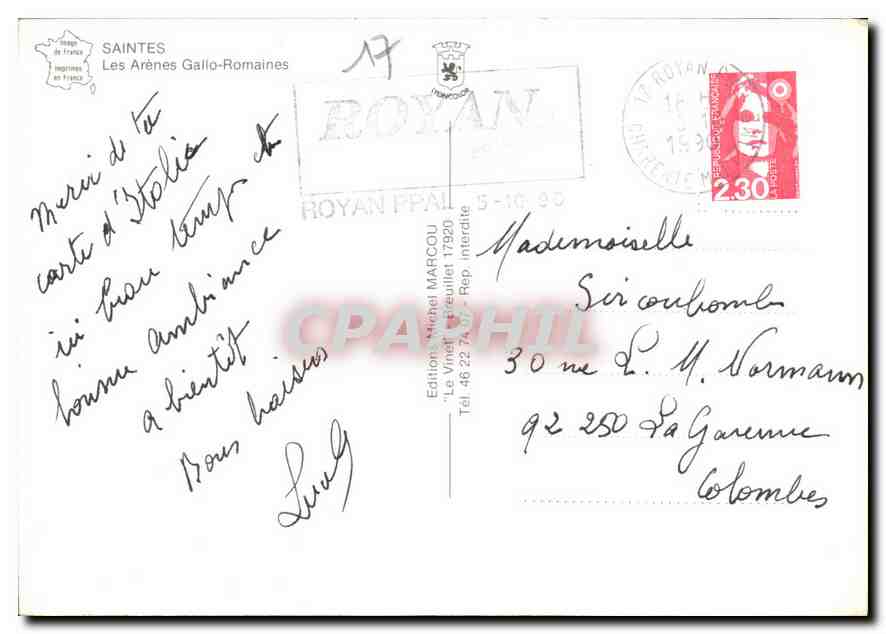 image
de france
imprimée
en france
SAINTES
Les Arènes Gallo-Romaines
17
LYONCOLOR
ROYAN
ROYAN PPAL 5-10-90
17 ROYAN
18 H
5-10
1990
CHARENTE M
REPUBLIQUE FRANÇAISE
2.30
LA POSTE
Merci de ta
carte d'Italie
ici beau temps et
bonne ambiance
a bientôt
Bons baisers
Mademoiselle
30 rue L. M. Normann
92 250 La Garenne
Colombes
Editions Michel MARCOU
"Le Vinet" - Breuillet 17920
Tél. 46 22 74 07 - Rep. interdite
CPAPHIL